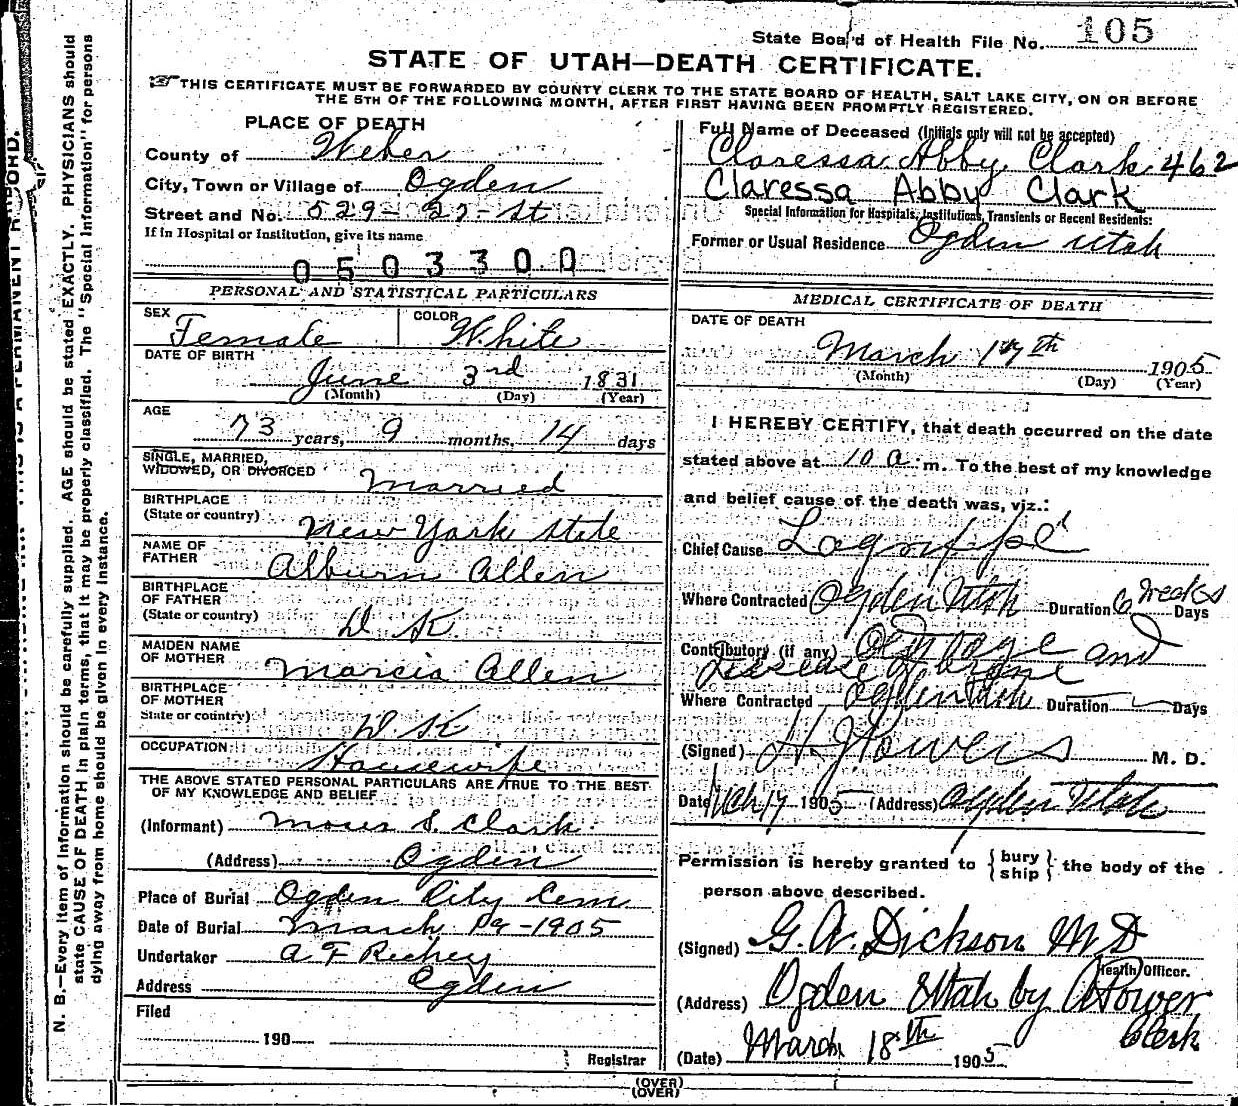 State Board of Health File No. 105
STATE OF UTAH—DEATH CERTIFICATE.
THIS CERTIFICATE MUST BE FORWARDED BY COUNTY CLERK TO THE STATE BOARD OF HEALTH, SALT LAKE CITY, ON OR BEFORE
THE 5TH OF THE FOLLOWING MONTH, AFTER FIRST HAVING BEEN PROMPTLY REGISTERED.
PLACE OF DEATH
County of Weber
City, Town or Village of Ogden
Street and No. 529 - 27 - St
If in Hospital or Institution, give its name
0503300
PERSONAL AND STATISTICAL PARTICULARS
SEX Female COLOR White
DATE OF BIRTH
June 3rd 1831
(Month) (Day) (Year)
AGE
73 years, 9 months, 14 days
SINGLE, MARRIED,
WIDOWED, OR DIVORCED Married
BIRTHPLACE
(State or country) New York State
NAME OF
FATHER Alburn Allen
BIRTHPLACE
OF FATHER
(State or country) D K
MAIDEN NAME
OF MOTHER Marcia Allen
BIRTHPLACE
OF MOTHER
State or country) D K
OCCUPATION Housewife
THE ABOVE STATED PERSONAL PARTICULARS ARE TRUE TO THE BEST
OF MY KNOWLEDGE AND BELIEF
(Informant) Moses S. Clark.
(Address) Ogden
Place of Burial Ogden City Cem
Date of Burial March 19 - 1905
Undertaker A F Richey
Address Ogden
Filed
190
Registrar
Full Name of Deceased (Initials only will not be accepted)
Claressa Abby Clark 462
Claressa Abby Clark
Special Information for Hospitals, Institutions, Transients or Recent Residents:
Former or Usual Residence Ogden Utah
MEDICAL CERTIFICATE OF DEATH
DATE OF DEATH
March 17th 1905
(Month) (Day) (Year)
I HEREBY CERTIFY, that death occurred on the date
stated above at 10 a. m. To the best of my knowledge
and belief cause of the death was, viz.:
Chief Cause
Where Contracted Ogden Utah Duration 6 weeks Days
Contributory (if any) Old age and
Disease of
Where Contracted Ogden Utah Duration Days
(Signed) H J Powers M. D.
Date Mch 17 1905 (Address) Ogden Utah
Permission is hereby granted to { bury ship } the body of the
person above described.
(Signed) G. W. Dickson M D
Health Officer.
(Address) Ogden Utah by Power
Clerk
(Date) March 18th 1905
(OVER)
(OVER)
N. B.—Every item of information should be carefully supplied. AGE should be stated EXACTLY. PHYSICIANS should
state CAUSE OF DEATH in plain terms, that it may be properly classified. The "Special Information" for persons
dying away from home should be given in every instance.